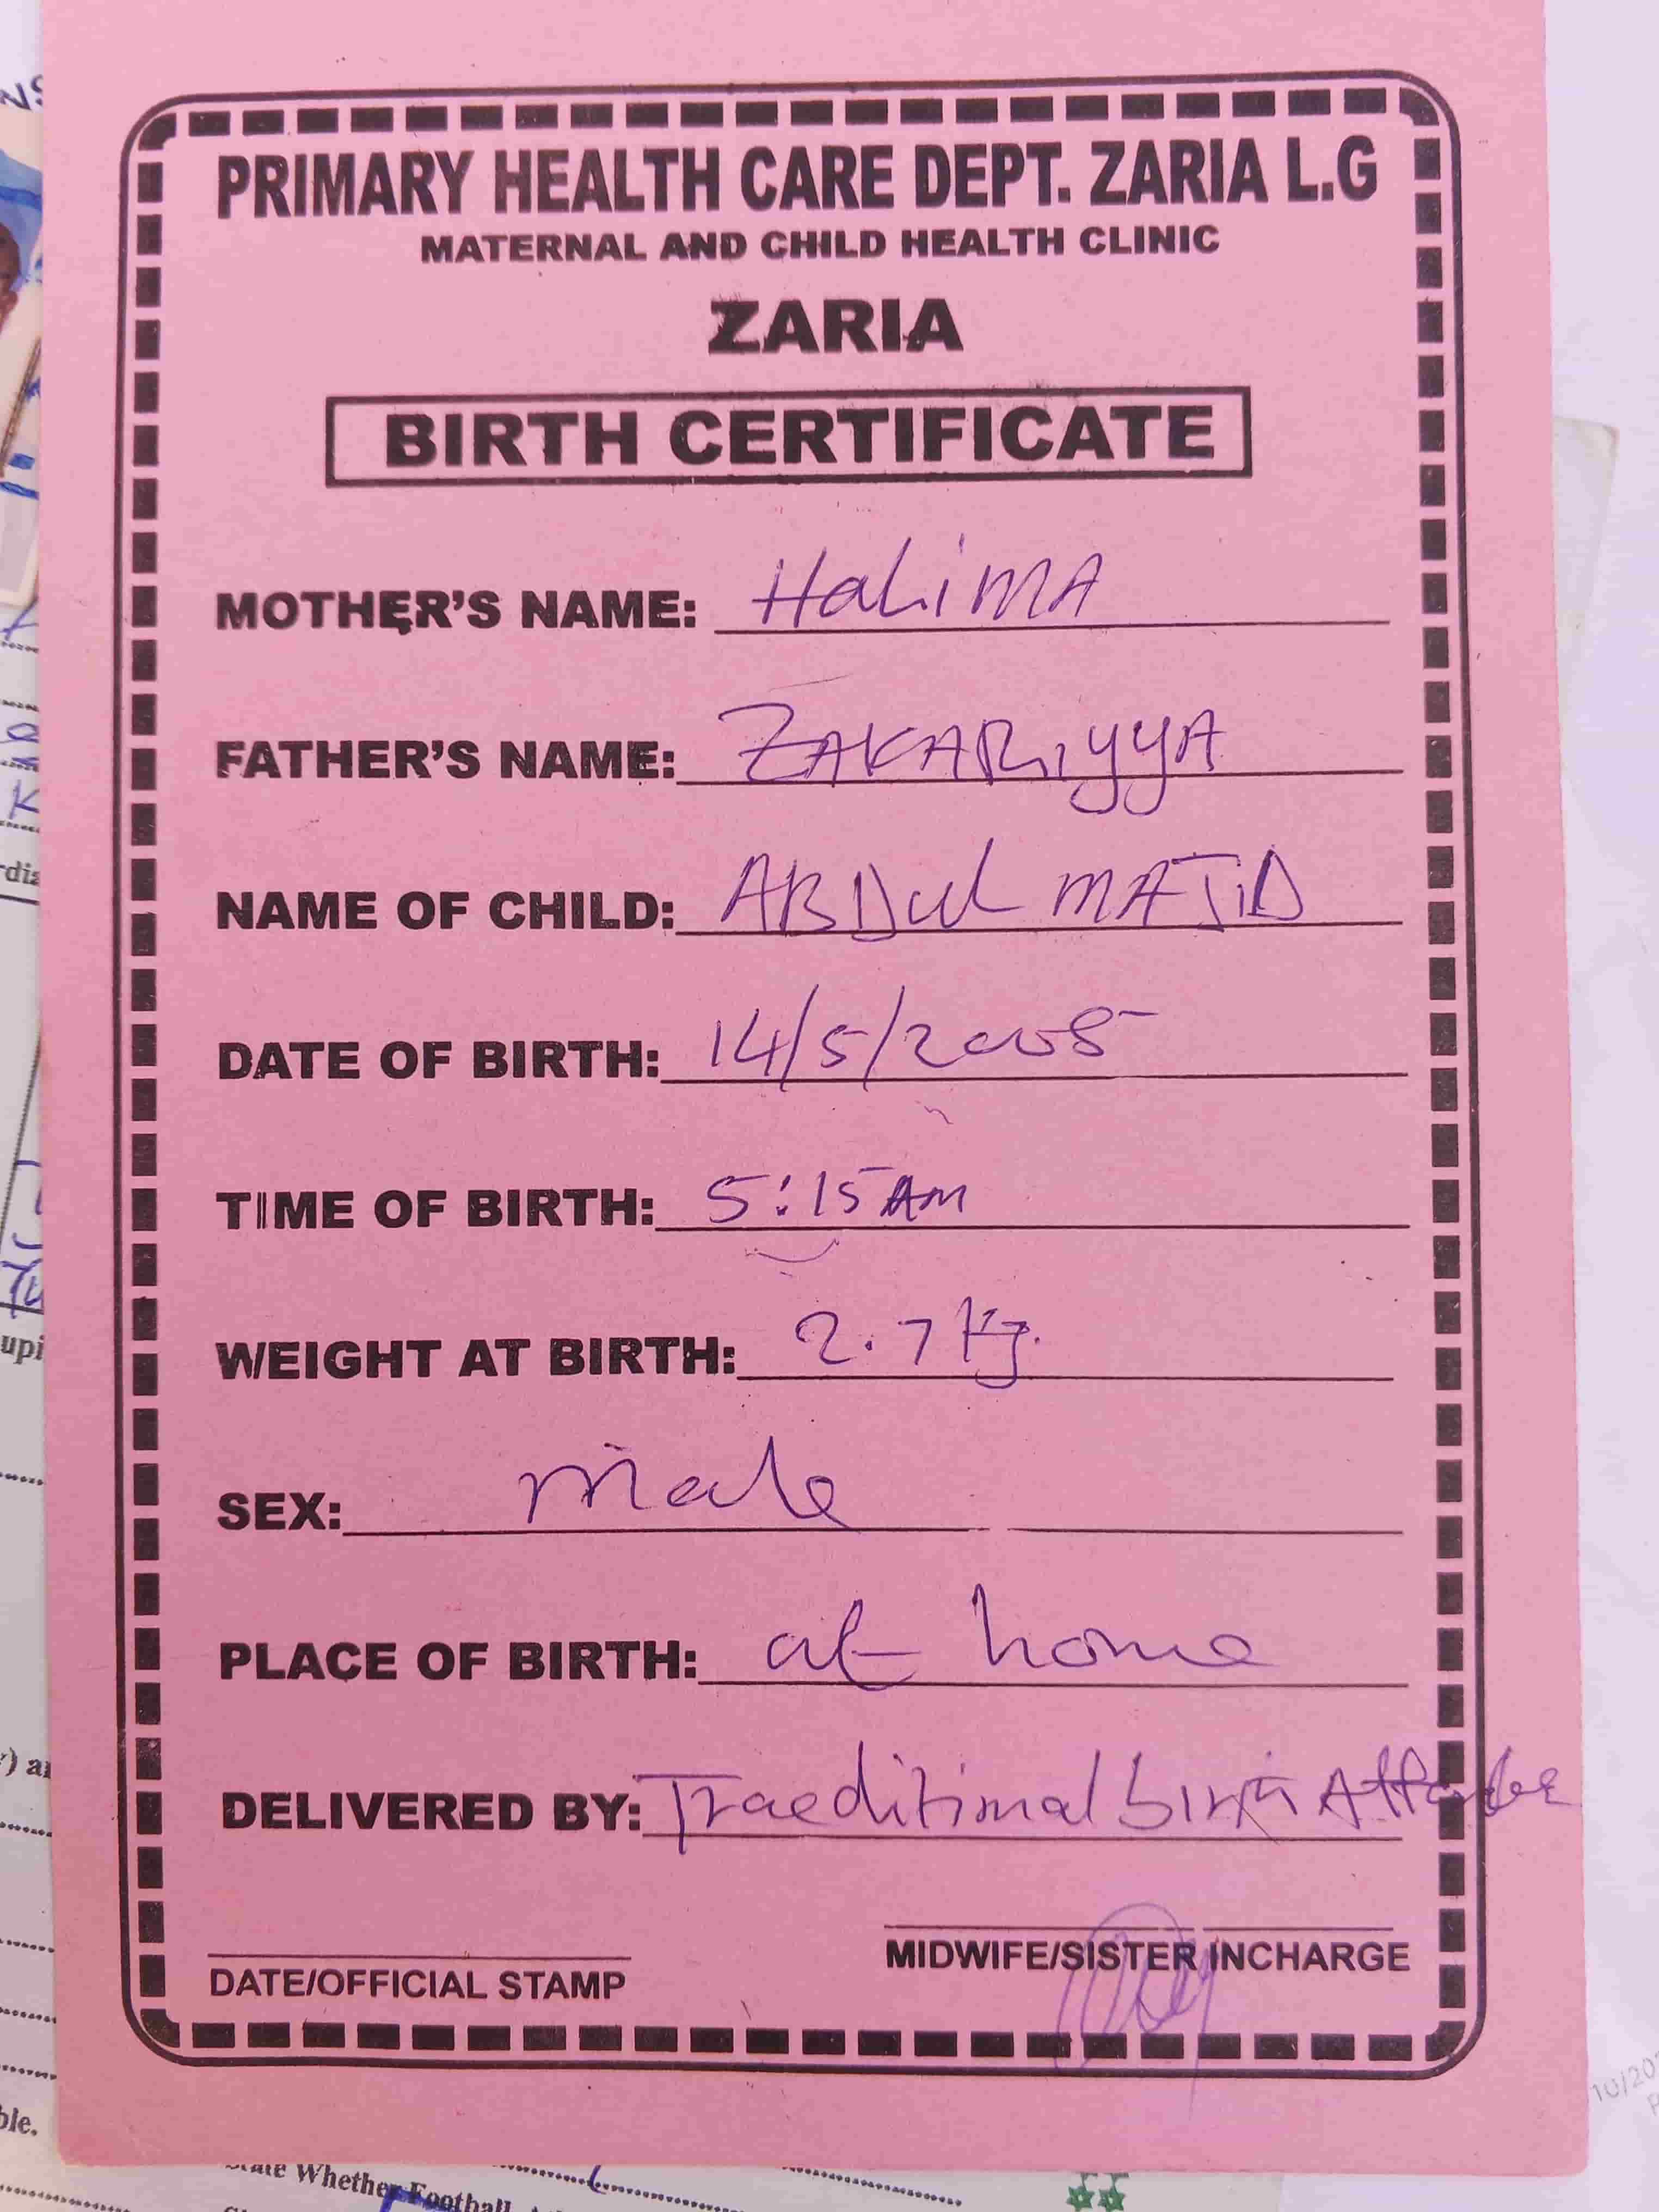 PRIMARY HEALTH CARE DEPT. ZARIA L.G
MATERNAL AND CHILD HEALTH CLINIC
ZARIA
BIRTH CERTIFICATE
MOTHER'S NAME: HaLiMA
FATHER'S NAME: ZAKARiyyA
NAME OF CHILD: ABDuL MAJiD
DATE OF BIRTH: 14/5/2005
TIME OF BIRTH: 5:15 AM
WEIGHT AT BIRTH: 2.7 kg.
SEX: Male
PLACE OF BIRTH: at home
DELIVERED BY: Traeditional birth
MIDWIFE/SISTER INCHARGE
DATE/OFFICIAL STAMP
ble.
State Whether Football